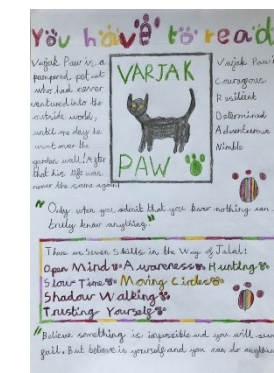 You have to read
Varjak Paw is a
pampered pet cat
who had never
ventured into the
outside world,
until one day he
went over the
garden wall! After
that his life was
never the same again!
VARJAK
PAW
Varjak Paw i
Courageous
Resilient
Determined
Adventurous
Nimble
"Only when you admit that you know nothing can
truly know anything."
There are Seven Skills in the Way of Jalal:
Open Mind Awareness Hunting
Slow Time Moving Circles
Shadow Walking
Trusting Yourself
"Believe something is impossible and you will
fail. But believe in yourself and you can do anything